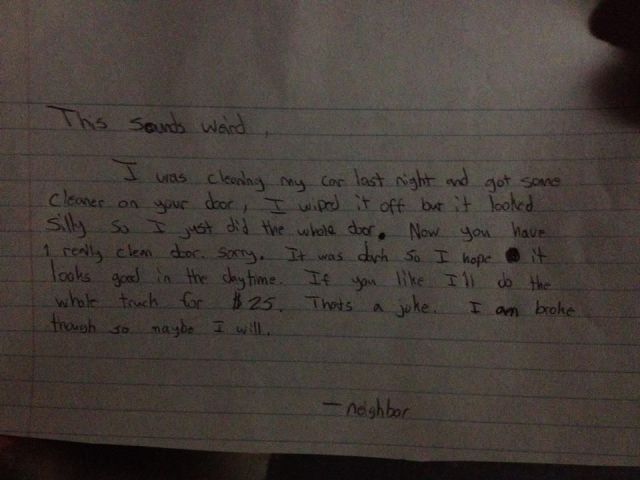 This sounds weird,
I was cleaning my car last night and got some
cleaner on your door, I wiped it off but it looked
silly so I just did the whole door. Now you have
1 really clean door. sorry. It was dark so I hope it
looks good in the daytime. If you like I'll do the
whole truck for $25. Thats a joke. I am broke
though so maybe I will.
— neighbor